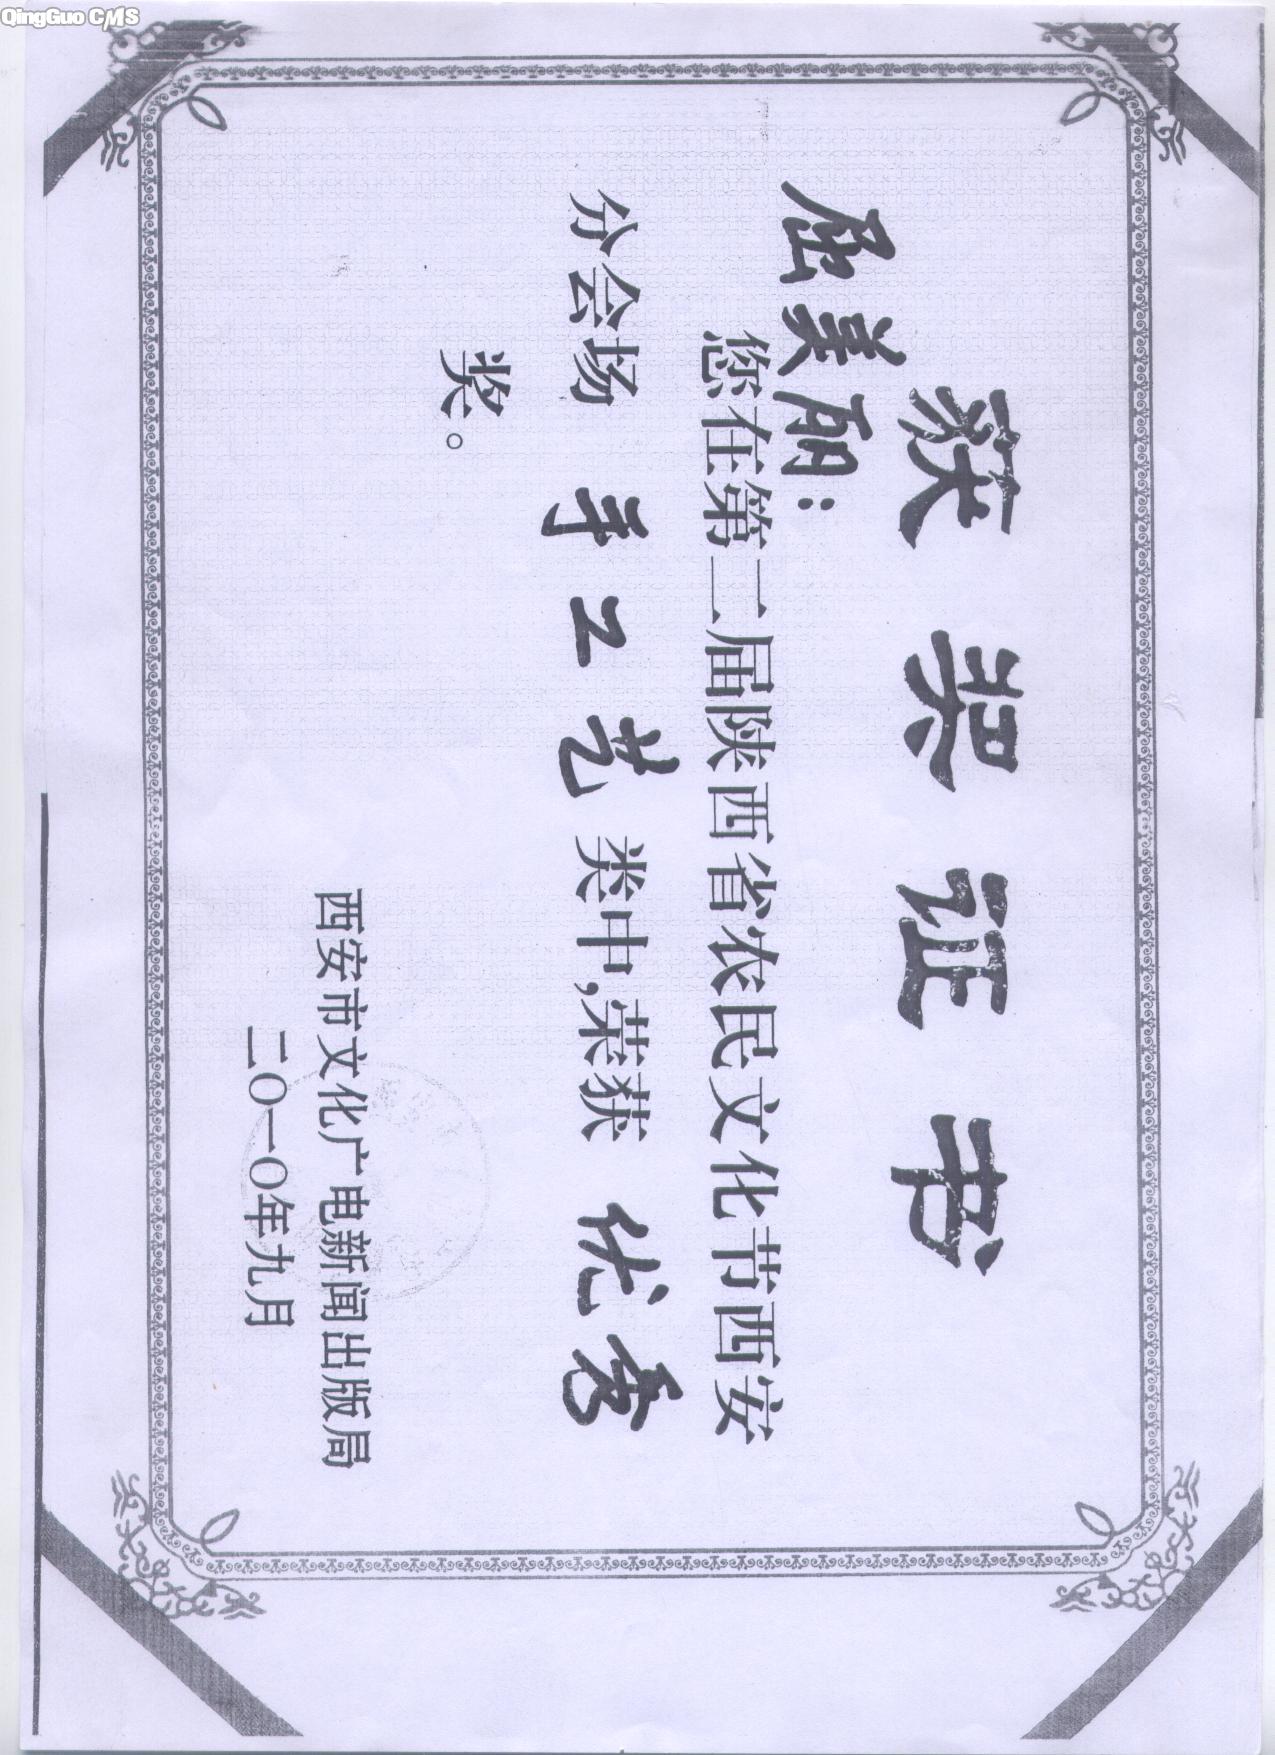 QingGuo CMS
获奖证书
屈美丽：
您在第二届陕西省农民文化节西安
分会场 手工艺 类中,荣获 优秀
奖。
西安市文化广电新闻出版局
二〇一〇年九月